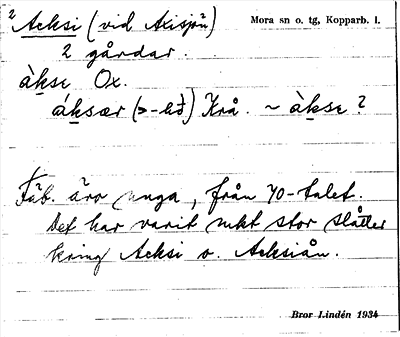 ² Acksi (vid Axisjön)
Mora sn o. tg, Kopparb. l.
2 gårdar.
àkse Ox.
áksær (>-kð) Krå. ~ àkse ?
Fäb. äro unga, från 70-talet.
Det har varit mkt stor slåtter
kring Acksi o. Acksiån.
Bror Lindén 1934